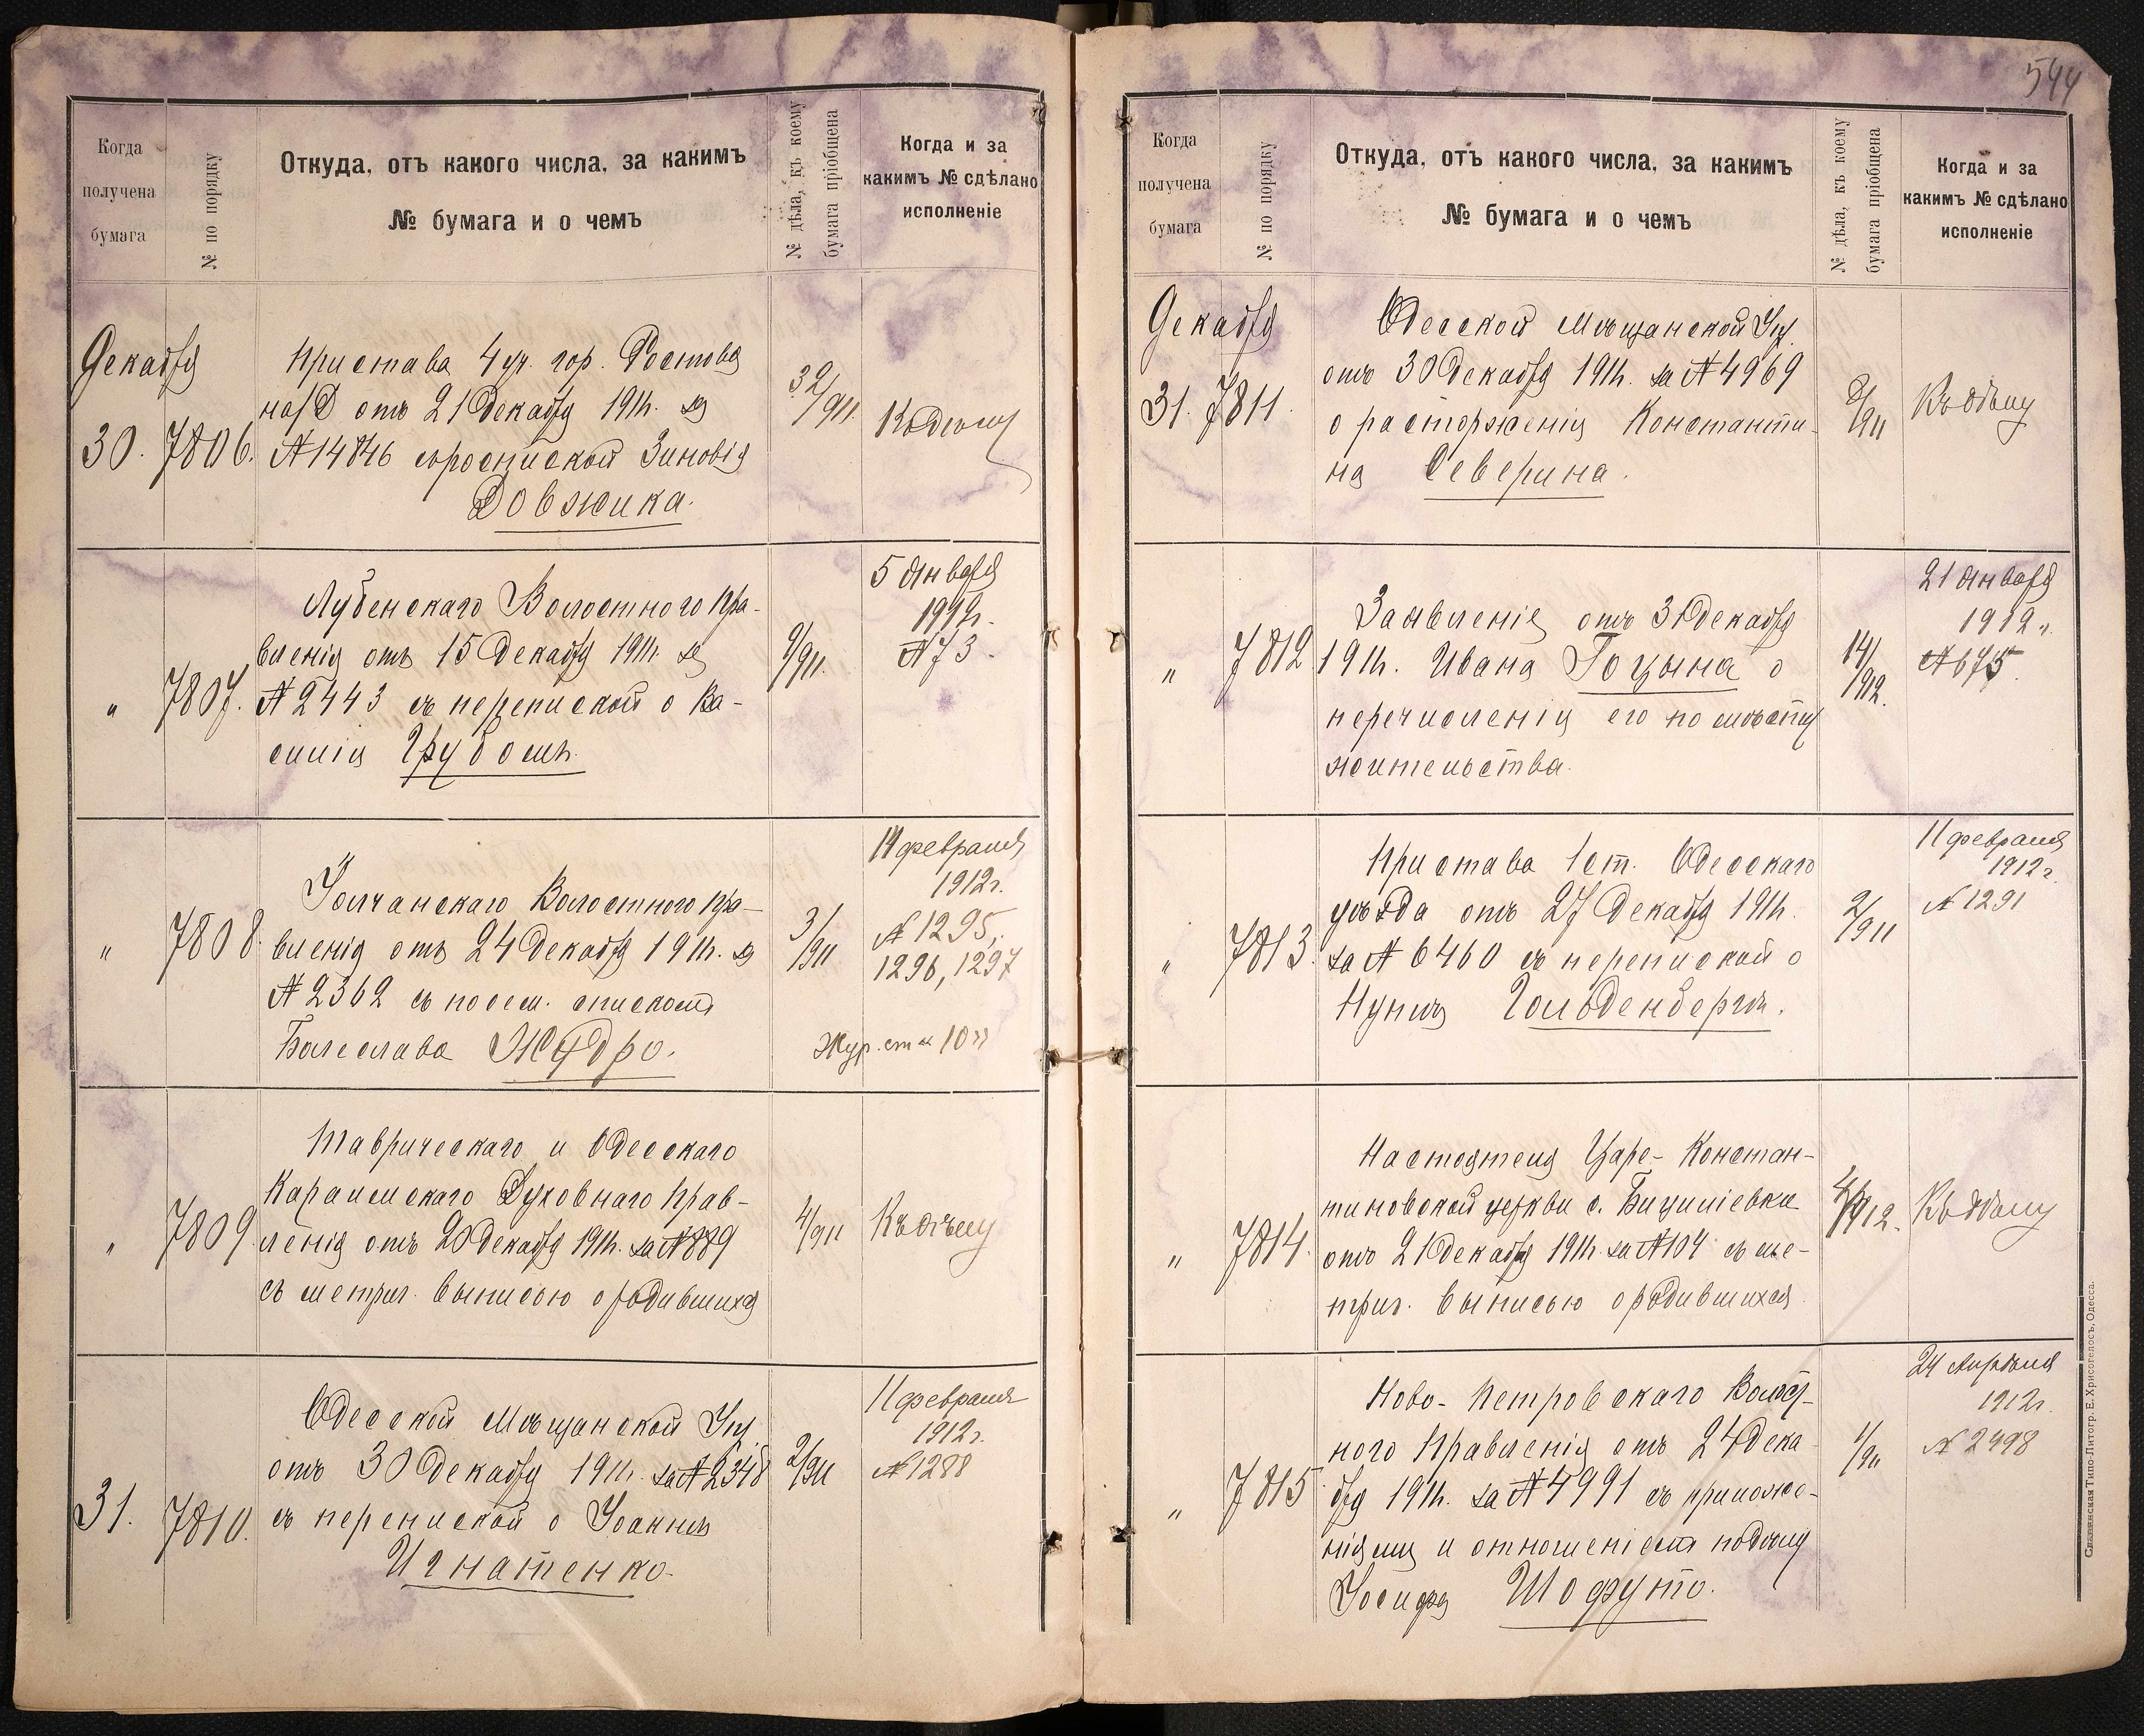 544
Когда
получена
бумага
№ по порядку
Откуда, отъ какого числа, за какимъ
№ бумага и о чемъ
№ дѣла, къ коему
бумага пріобщена
Когда и за
какимъ № сдѣлано
исполненіе
Декабря
30. 7806.
Пристава 4 уч. гор. Ростова
на/Д отъ 21 Декабря 1911г. за
№ 14846 съ роспиской Зиновія
Довжика.
32/911.
Къ дѣлу
" 7807.
Лубенскаго Волостного Пра-
вленія отъ 15 Декабря 1911г. за
№ 2443 съ перепиской о Ва-
силіи Грубомъ.
9/911.
5 Января
1912г.
№ 73.
" 7808.
Волостного Пра-
вленія отъ 24 Декабря 1911г. за
№ 2362 съ посем. спискомъ
Болеслава
3/911
14 февраля
1912г.
№ 1295,
1296, 1297
Жур. ст "10"
" 7809
Таврическаго и Одесскаго
Караимскаго Духовнаго Прав-
ленія отъ 20 Декабря 1911г. за № 889
съ метрич. выписью о родившихся
4/911
Къ дѣлу
31. 7810.
Одесской Мѣщанской Упр.
отъ 30 Декабря 1911г. за № 2348
съ перепиской о Іоаннѣ
Игнатенко.
2/911
11 февраля
1912г.
№ 1288
Когда
получена
бумага
№ по порядку
Откуда, отъ какого числа, за какимъ
№ бумага и о чемъ
№ дѣла, къ коему
бумага пріобщена
Когда и за
какимъ № сдѣлано
исполненіе
Декабря
31. 7811.
Одесской Мѣщанской Упр.
отъ 30 Декабря 1911г. за № 4969
о расторженіи Константи-
на Северина.
2/911
Къ дѣлу
" 7812
Заявленіе отъ 31 Декабря
1911г. Ивана Гоцына о
перечисленіи его по мѣсту
жительства.
14/1912.
21 Января
1912 г.
№ 675.
" 7813.
Пристава 1 ст. Одесскаго
уѣзда отъ 27 Декабря 1911г.
за № 6460 съ перепиской о
Гольденбергѣ.
2/1911
11 февраля
1912г.
№ 1291
" 7814.
Настоятеля Царе-Констан-
тиновской церкви с. Бициліевки
отъ 21 Декабря 1911г. за № 104 съ ме-
трич. выписью о родившихся
4/1912.
Къ дѣлу
" 7815
Ново-Петровскаго Волост-
ного Правленія отъ 24 Дека-
бря 1911г. за № 4991 съ приложе-
ніями и отношеніемъ по дѣлу
Іосифа Шофуто.
1/911
24 Апрѣля
1912г.
№ 2498
Славянская Типо-Литогр. Е. Хрисогелосъ, Одесса.